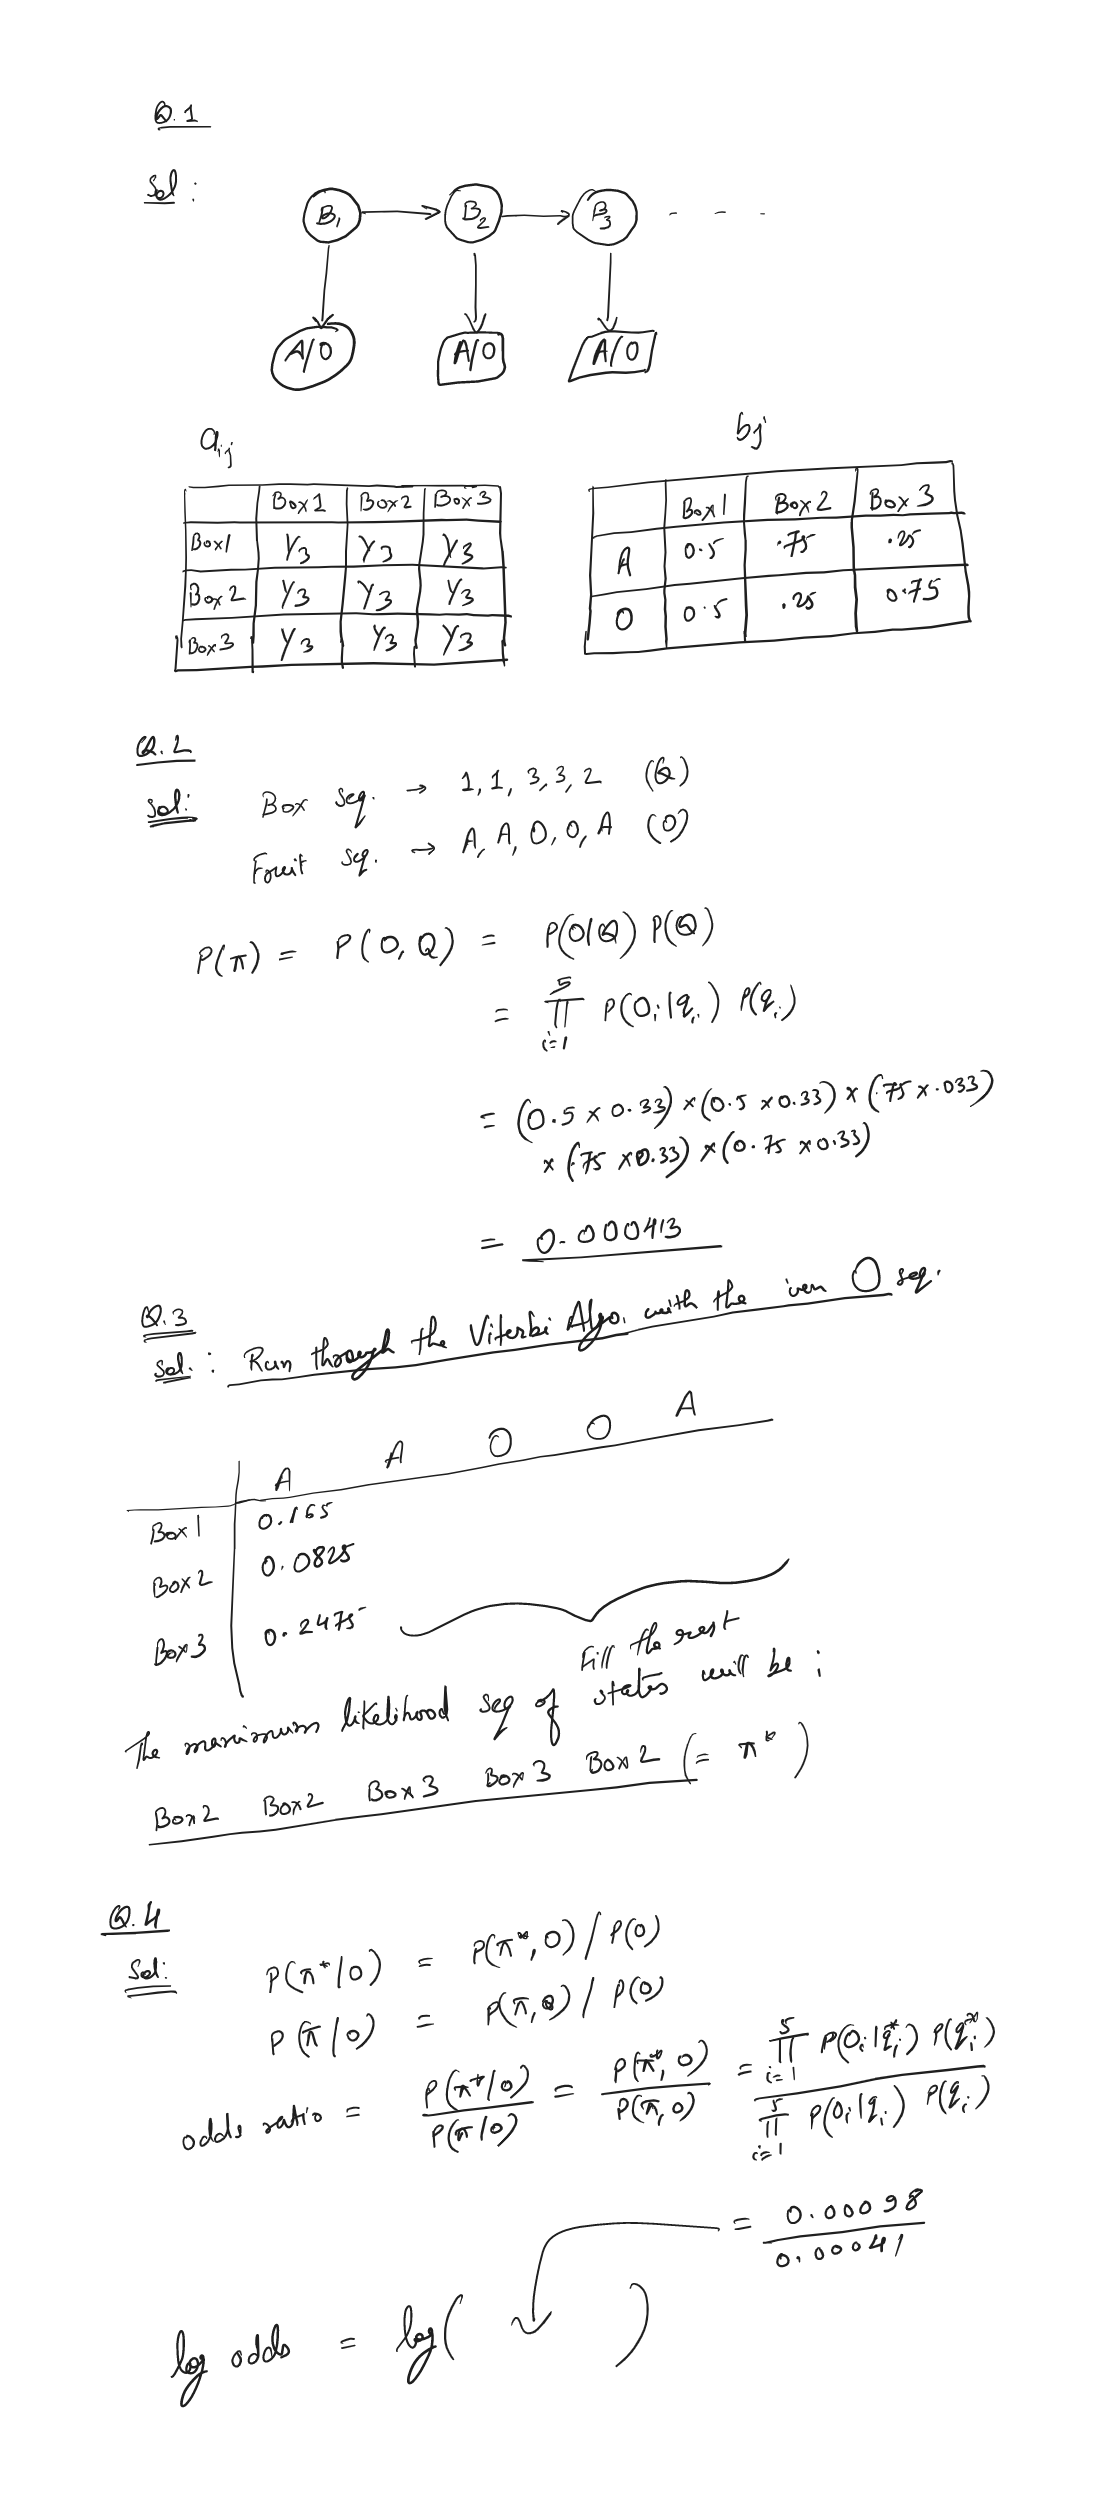 Q.1
Sol:
B₁ B₂ B₃ - - -
A/O A/O A/O
aᵢⱼ
Box1 Box2 Box3
Box1 1/3 1/3 1/3
Box2 1/3 1/3 1/3
Box3 1/3 1/3 1/3
bⱼ
Box1 Box2 Box3
A 0.5 .75 .25
O 0.5 .25 0.75
Q.2
Sol: Box seq. → 1, 1, 3, 3, 2 (Q)
Fruit seq. → A, A, O, O, A (O)
P(π) = P(O, Q) = P(O|Q) P(Q)
= ∏ᵢ₌₁⁵ P(Oᵢ|qᵢ) P(qᵢ)
= (0.5 x 0.33) x (0.5 x 0.33) x (.75 x .033)
x (.75 x 0.33) x (0.75 x 0.33)
= 0.000413
Q.3
Sol.: Run through the Viterbi Algo. with the iven O seq.
A A O O A
Box1 0.165
Box2 0.0825
Box3 0.2475
Fill the rest
The maximum likelihood seq of states will be :
Box2 Box2 Box3 Box3 Box2 (= π*)
Q.4
Sol: P(π*|O) = P(π*, O) / P(O)
P(π|O) = P(π, O) / P(O)
odds ratio = P(π*|O) / P(π|O) = P(π*, O) / P(π, O) = ∏ᵢ₌₁⁵ P(Oᵢ|qᵢ*) P(qᵢ*) / ∏ᵢ₌₁⁵ P(Oᵢ|qᵢ) P(qᵢ)
= 0.00098 / 0.00041
log odds = log( )